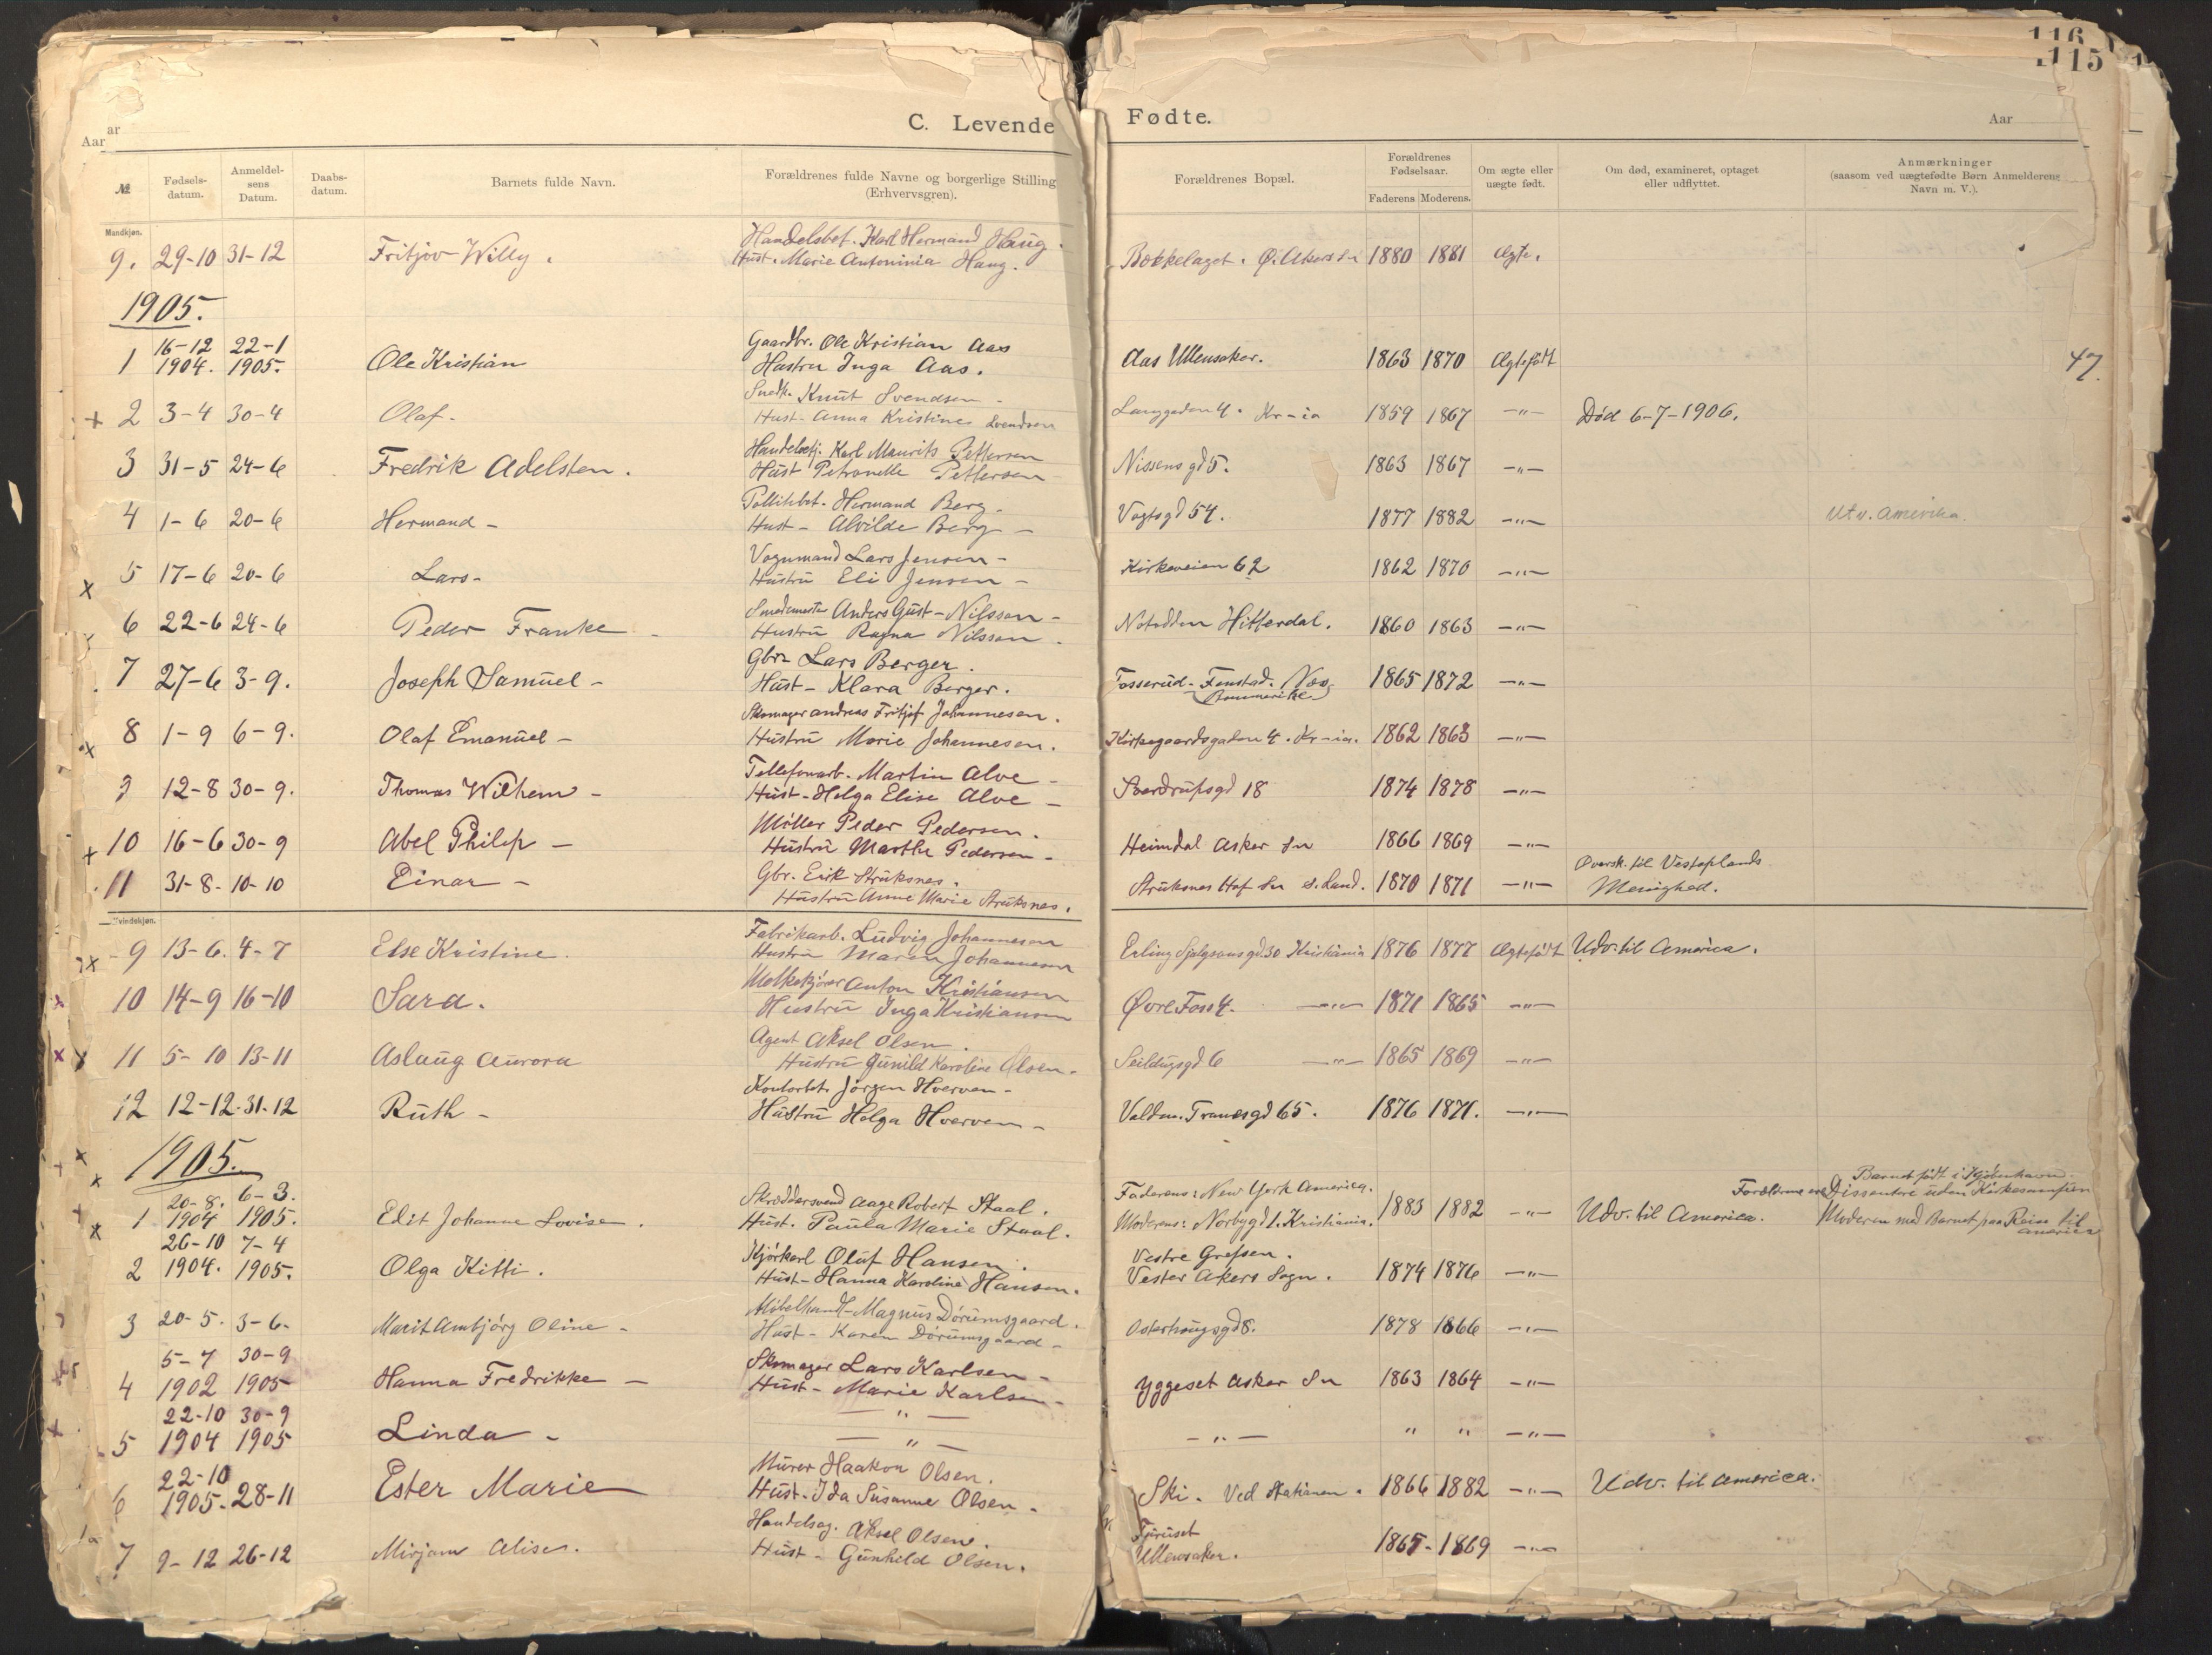 116
115
C. Levende Fødte.
Aar
Aar
№
Fødselsdatum.
Anmeldelsens Datum.
Daabsdatum.
Barnets fulde Navn.
Forældrenes fulde Navne og borgerlige Stilling (Erhvervsgren).
Forældrenes Bopæl.
Forældrenes Fødselsaar.
Faderens Moderens.
Om ægte eller uægte født.
Om død, examineret, optaget eller udflyttet.
Anmærkninger (saasom ved uægtefødte Børn Anmelderens Navn m. V.).
Mandkjøn.
9. 29-10 31-12 Fritjov Willy. Handelsbet. Karl Hermand Haug.
Hust. Marie Antoninia Haug. Bækkelaget. Ø. Akers 1880 1881 Ægte.
1905.
1 16-12 1904. 22-1 1905. Ole Kristian Gaardbr. Ole Kristian Aas
Hustru Inga Aas. Aas Ullensaker. 1863 1870 Ægtefødt 47.
+ 2 3-4 30-4 Olaf- Snedk. Knut Svendsen-
Hust- Anna Kristine Svendsen Langgaden 4. Kr-ia 1859 1867 -"- Død 6-7-1906.
3 31-5 24-6 Fredrik Adelsten. Karl Maurits Pettersen
Hust Petronelle Pettersen Nissens gd 5. 1863 1867 -"-
4 1-6 20-6 Hermand- Hermand Berg-
Hust- Alvilde Berg- Vogtsgd 54. 1877 1882 -"- Utv. Amerika.
x 5 17-6 20-6 Lars- Vognmand Lars Jensen-
Hustru Eli Jensen- Kirkeveien 62 1862 1870 -"-
6 22-6 24-6 Peder Franke- Smedemester Anders Gust- Nilsson-
Hustru Ragna Nilsson. Notodden Hitterdal. 1860 1863 -"-
7 27-6 3-9. Joseph Samuel- Gbr- Lars Berger.
Hust- Klara Berger. Fosserud- Fenstad. Næs Romerike 1865 1872 -"-
x 8 1-9 6-9. Olaf Emanuel- Skomager Andreas Fritjof Johannesen.
Hustru Marie Johannesen. Kirkegaardsgaden 4. Kr-ia. 1862 1863 -"-
9 12-8 30-9. Thomas Wilhem- Tellefonarb. Martin Alve-
Hust- Helga Elise Alve- Sverdrupsgd 18 1874 1878 -"-
+ 10 16-6 30-9 Abel Philip- Møller Peder Pedersen.
Hustru Marthe Pedersen- Heimdal Asker Sn 1866 1869 -"-
11 31-8- 10-10 Einar- Gbr. Erik Struksnes.
Hustru Anne Marie Struksnes. Struksnes Hof Sn S. Land. 1870 1871 -"- Oversk. til Vestoplands Menighed.
Kvindekjøn.
x 9 13-6. 4-7 Else Kristine. Fabrikarb. Ludvig Johannesen
Hustru Maren Johannesen Erling Skjalgsons gd 30 Kristiania 1876 1877 Ægtefødt Udv. til America.
x 10 14-9 16-10 Sara. Melkekjører Anton Kristiansen
Hustru Inga Kristiansen Øvre Foss 4. -"- 1871 1865 -"-
x 11 5-10 13-11 Aslaug Aurora Agent Aksel Olsen.
Hustru Gunild Karoline Olsen- Seildugsgd 6 -"- 1865 1869 -"-
12 12-12. 31-12 Ruth- Kontorbet. Jørgen Hverven-
Hustru Helga Hverven- Valdm. Tranesgd 65. 1876 1871. -"-
1905.
x 1 20-8. 1904 6-3. 1905. Edit Johanne Lovise. Skræddersvend Aage Robert Staal.
Hust. Paula Marie Staal. Faderens: New York America.
Moderens: Norbygd 1. Kristiania. 1883 1882 -"- Udv. til America. Barnet født i Kjøbenhavn.
Forældrene ere Dissentere uden Kirkesamfun
Moderen med Barnet paa Reise til America
2 26-10 1904. 7-4 1905. Olga Kitti. Kjørkarl Oluf Hansen.
Hust- Hanna Karoline Hansen. Vestre Grefsen.
Vester Akers Sogn. 1874 1876 -"-
3 20-5. 3-6- Marit Ambjørg Oline- Møbelhandl- Magnus Dørumsgaard.
Hust- Karen Dørumsgaard- Osterhougsgd 8. 1878 1866 -"-
4 5-7 1902 30-9 1905 Hanna Fredrikke- Skomager Lars Karlsen-
Hust- Marie Karlsen- Yggeset Asker Sn 1863 1864 -"-
x 5 22-10 1904 30-9 1905 Linda- -"-
-"- -"- " " -"-
6 22-10 1905- 28-11 Ester Marie Murer Haakon Olsen.
Hust- Ida Susanne Olsen- Ski. Ved Stationen. 1866 1882 -"- Udv. til America.
7 9-12 26-12 Mirjam Alise. Handelsag. Aksel Olsen.
Hust- Gunhild Olsen. Furuset
Ullensaker. 1865- 1869 -"-